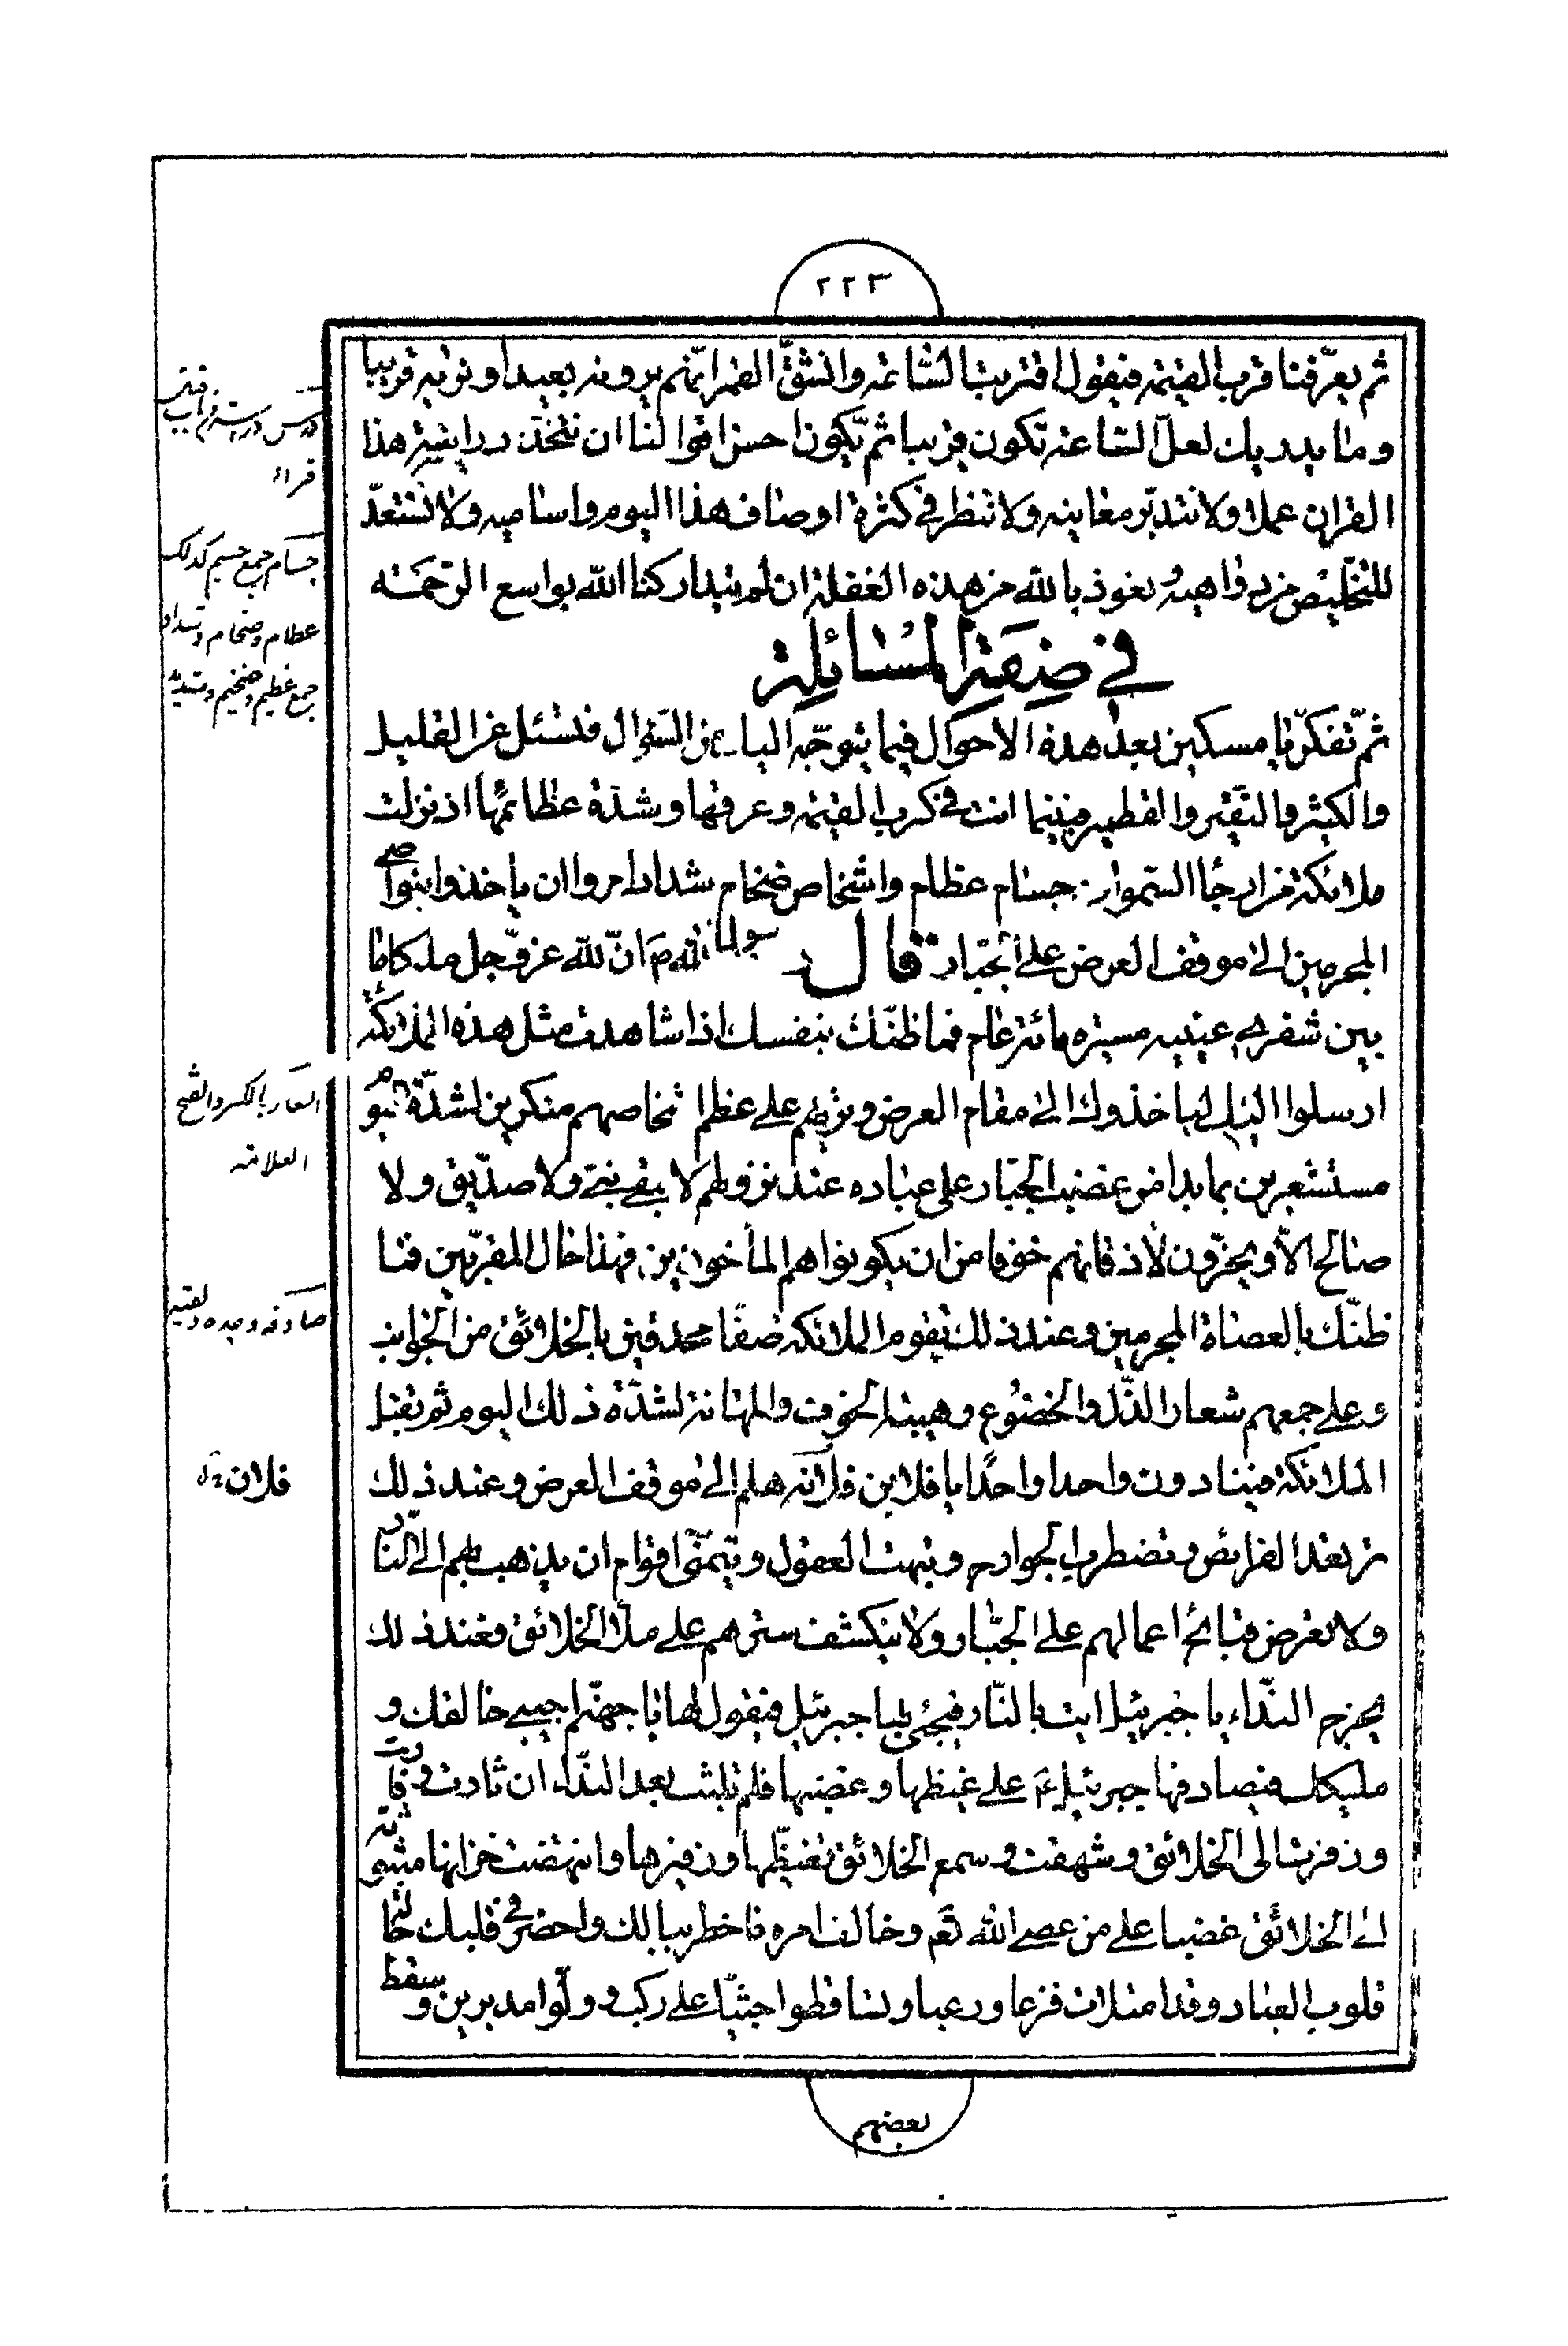 ٢٢٣
ثم يعرّفنا قرب القيمة فيقول اقتربت الساعة وانشقّ القمر انّهم يرونه بعيدا ونريه قريبا
وما يدريك لعلّ الساعة تكون قريبا ثم يكون احسن احوالنا ان نتخذ دراسة هذا
القران عملا ولا نتدبّر معانيه ولا ننظر في كثرة اوصاف هذا اليوم واساميه ولا نستعدّ
للتخليص من دواهيه ونعوذ بالله من هذه الغفلة ان لم يتداركنا الله بواسع الرّحمة
في صفة المسائلة
ثمّ تفكّر يا مسكين بعد هذه الاحوال فيما يتوجّه اليك من السّؤال فتسئل عن القليل
والكثير والنّقير والقطمير فبينما انت في كرب القيمة وعرقها وشدّة عظائمها اذ نزلت
ملائكة من ارجاء السّموات جسام عظام واشخاص ضخام شداد امروا ان ياخذوا بنواصي
المجرمين الى موقف العرض على الجبّار قال رسول الله ص انّ لله عزّ وجل ملكا ما
بين شفري عينيه مسيرة مائة عام فما ظنّك بنفسك اذا شاهدت مثل هذه الملائكة
ارسلوا اليك لياخذوك الى مقام العرض وتريهم على عظم اشخاصهم منكرين لشدّة اليوم
مستشعرين بما بدا من غضب الجبّار على عباده عند نزولهم لا يبقى نبيّ ولا صدّيق ولا
صالح الّا ويخرّون لاذقانهم خوفا من ان يكونوا هم المأخوذين فهذا حال المقرّبين فما
ظنّك بالعصاة المجرمين وعند ذلك يقوم الملائكة صفّا محدقين بالخلائق من الجوانب
وعلى جمعهم شعار الذّل والخضوع وهيئة الخوف والمهانة لشدّة ذلك اليوم ثم تقبل
الملائكة فينادون واحدا واحدا يا فلان بن فلانة هلم الى موقف العرض وعند ذلك
ترتعد الفرائص وتضطرب الجوارح وتبهت العقول ويتمنّى اقوام ان يذهب بهم الى النّار
ولا تعرض قبائح اعمالهم على الجبّار ولا ينكشف سترهم على ملأ الخلائق فعند ذلك
يخرج النّداء يا جبرئيل ايت بالنّار فيجئ لها جبرئيل فيقول لها يا جهنّم اجيبي خالقك و
مليكك فيصادفها جبرئيل ع على غيظها وغضبها فلم تلبث بعد النّداء ان ثارت وفارت
وزفرت الى الخلائق وشهقت وسمع الخلائق تغيّظها وزفيرها وانتهضت خزانها متوثبة
الى الخلائق غضبا على من عصى الله تع وخالف امره فاخطر ببالك واحضر في قلبك حالة
قلوب العباد وقد امتلات فزعا ورعبا وتساقطوا جثيّا على ركب وولّوا مدبرين وسقط
بعضهم
قراءة
جسام جمع جسيم كذلك
عظام وضخام وشداد
جمع عظيم وضخيم وشديد
الشعار بالكسر والفتح
العلامة
صادفه وجده ولقيه
فلان